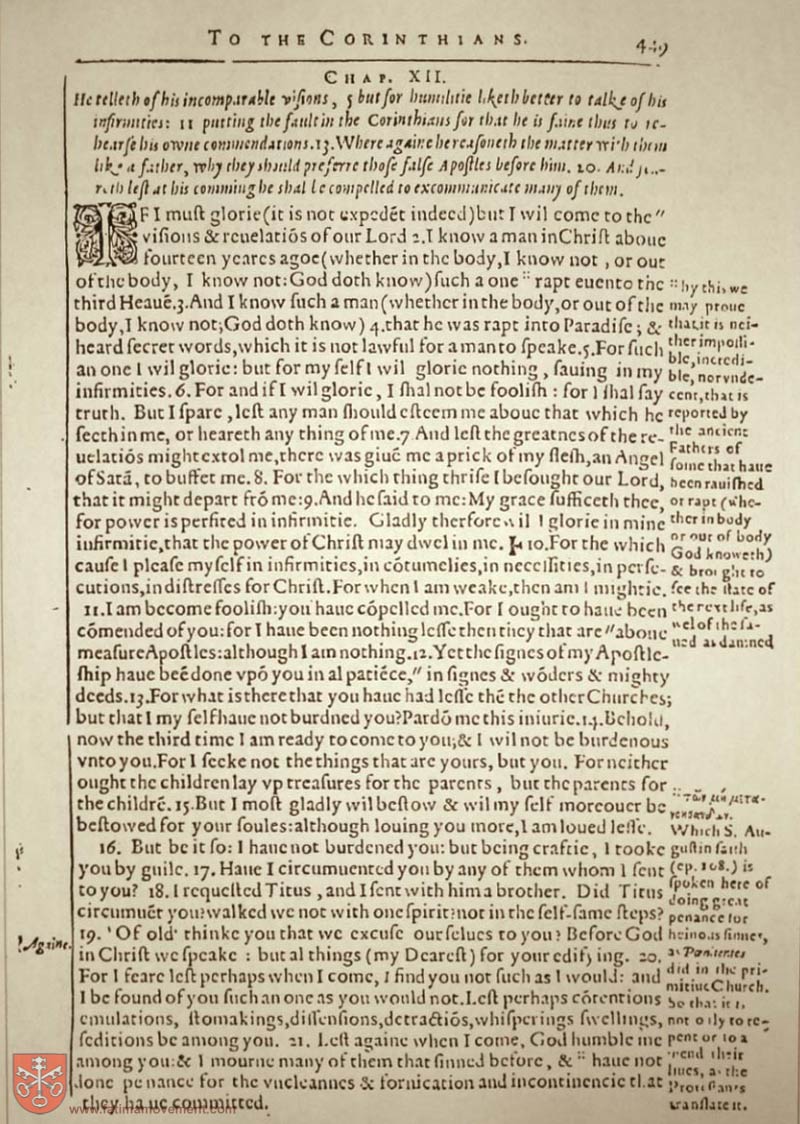 TO THE CORINTHIANS.
449
CHAP. XII.
He telleth of his incomparable visions, 5 but for humilitie liketh better to talke of his
infirmities: 11 putting the fault in the Corinthians for that he is faine thus to re-
hearse his owne commendations. 13. Where againe he reasoneth the matter with them
like a father, why they should preferre those false Apostles before him. 20. And
left at his comming he shal be compelled to excommunicate many of them.
IF I must glorie (it is not expedẽt indeed) but I wil come to the "
visions & reuelatiõs of our Lord 2. I know a man in Christ aboue
fourteen yeares agoe (whether in the body, I know not, or out
of the body, I know not: God doth know) such a one :: rapt euen to the
third Heauẽ. 3. And I know such a man (whether in the body, or out of the
body, I know not; God doth know) 4. that he was rapt into Paradise; &
heard secret words, which it is not lawful for a man to speake. 5. For such
an one I wil glorie: but for my self I wil glorie nothing, sauing in my
infirmities. 6. For and if I wil glorie, I shal not be foolish: for I shal say
truth. But I spare, lest any man should esteem me aboue that which he
seeth in me, or heareth any thing of me. 7 And lest the greatnes of the re-
uelatiõs might extol me, there was giuẽ me a prick of my flesh, an Angel
of Satã, to buffet me. 8. For the which thing thrise I besought our Lord,
that it might depart frõ me: 9. And he said to me: My grace sufficeth thee,
for power is perfited in infirmitie. Gladly therfore wil I glorie in mine
infirmitie, that the power of Christ may dwel in me. 10. For the which
cause I please my self in infirmities, in cõtumelies, in necessities, in perse-
cutions, in distresses for Christ. For when I am weake, then am I mightie.
11. I am become foolish: you haue cõpelled me. For I ought to haue been
cõmended of you: for I haue been nothing lesse then they that are "aboue
measure Apostles: although I am nothing. 12. Yet the signes of my Apostle-
ship haue beẽ done vpõ you in al patiẽce," in signes & wõders & mighty
deeds. 13. For what is there that you haue had lesse thẽ the other Churches;
but that I my self haue not burdned you? Pardõ me this iniurie. 14. Behold,
now the third time I am ready to come to you; & I wil not be burdenous
vnto you. For I seeke not the things that are yours, but you. For neither
ought the children lay vp treasures for the parents, but the parents for
the childrẽ. 15. But I most gladly wil bestow & wil my self moreouer be
bestowed for your soules: although louing you more, I am loued lesse.
16. But be it so: I haue not burdened you: but being craftie, I tooke
you by guile. 17. Haue I circumuented you by any of them whom I sent
to you? 18. I requested Titus, and I sent with him a brother. Did Titus
circumuẽt you? walked we not with one spirit? not in the self-same steps?
19. 'Of old' thinke you that we excuse our selues to you? Before God
in Christ we speake: but al things (my Dearest) for your edifying. 20.
For I feare lest perhaps when I come, I find you not such as I would: and
I be found of you such an one as you would not. Lest perhaps cõtentions
emulations, stomakings, dissensions, detractiõs, whisperings swellings,
seditions be among you. 21. Lest againe when I come, God humble me
among you: & I mourne many of them that sinned before, & :: haue not
done penance for the vncleannes & fornication and incontinencie that
they haue committed.
:: by this we
may proue
that it is nei-
ther impossi-
ble, incredi-
ble, nor vnde-
cent, that is
reported by
the ancient
Fathers of
some that haue
been rauished
or rapt (whe-
ther in body
or out of body
God knoweth)
& brought to
see the state of
the next life, as
wel of the sa-
ued as damned
Which S. Au-
gustin saith
(ep. 108.) is
spoken here of
doing great
penance for
heinous sinnes,
as Penitentes
did in the pri-
mitiue Church.
So that it is
not only to re-
pent or to a
mend their
liues, as the
Protestants
translate it.
! Againe.
www.fatimamovement.com